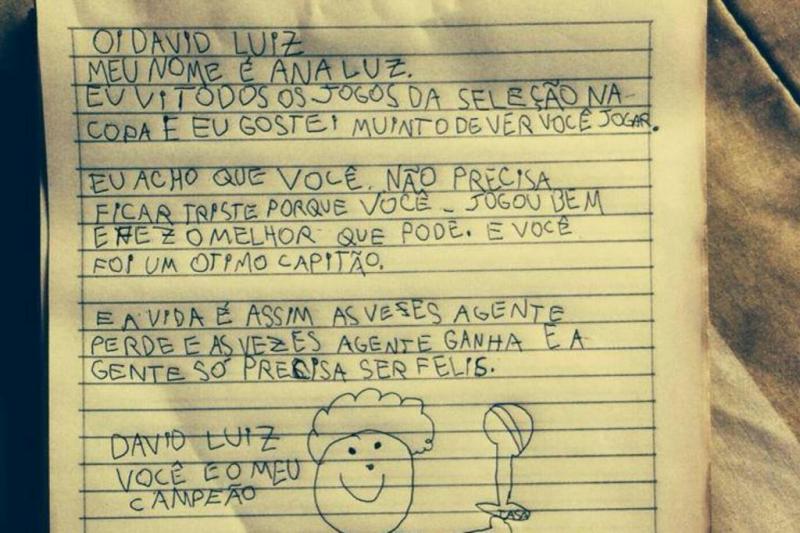 OI DAVID LUIZ
MEU NOME É ANA LUZ.
EU VI TODOS OS JOGOS DA SELEÇÃO NA
COPA E EU GOSTEI MUINTO DE VER VOCÊ JOGAR.
EU ACHO QUE VOCÊ. NÃO PRECISA
FICAR TRISTE PORQUE VOCÊ - JOGOU BEM
E FEZ O MELHOR QUE PODE. E VOCÊ
FOI UM OTIMO CAPITÃO.
E A VIDA É ASSIM AS VESES AGENTE
PERDE E AS VEZES AGENTE GANHA E A
GENTE SÓ PRECISA SER FELIS.
DAVID LUIZ
VOCÊ E O MEU
CAMPEÃO
TASA